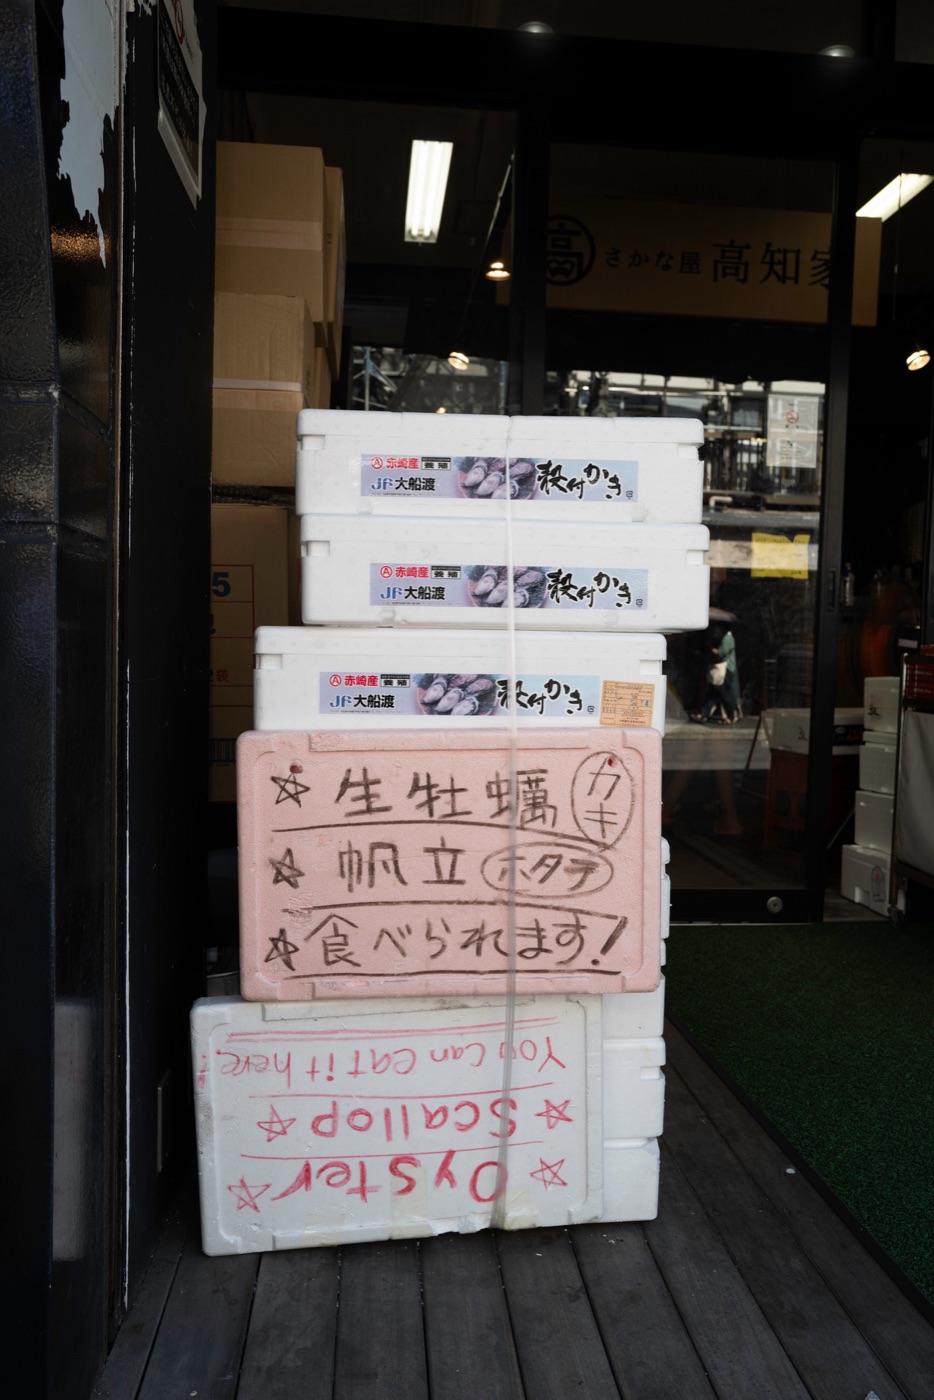 高 さかな屋 高知家
Ⓐ赤崎産 養殖
JF大船渡
殻付かき
Ⓐ赤崎産 養殖
JF大船渡
殻付かき
Ⓐ赤崎産 養殖
JF大船渡
殻付かき
5
☆ 生牡蠣 カキ
☆ 帆立 ホタテ
☆ 食べられます!
☆ Oyster ☆
☆ Scallop ☆
You can eat it here!